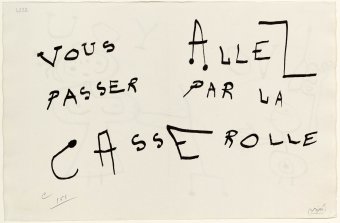 VOUS ALLEZ
PASSER PAR LA
CASSEROLLE